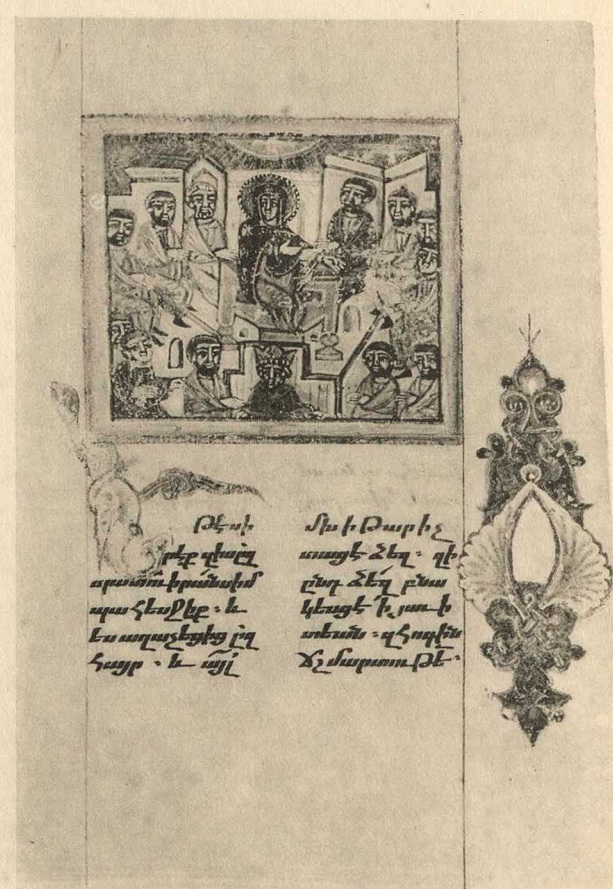 Եթէ սի
րէք զիս ըզ
պատուիրանս իմ
պահեսջիք · և
ես աղաչեցից ըզ
հայր · և այլ
մխիթարիչ
տացէ ձեզ · զի
ընդ ձեզ բնա
կեսցէ ՛ի յաւի
տեան · զհոգին
ճշմարտութե ·